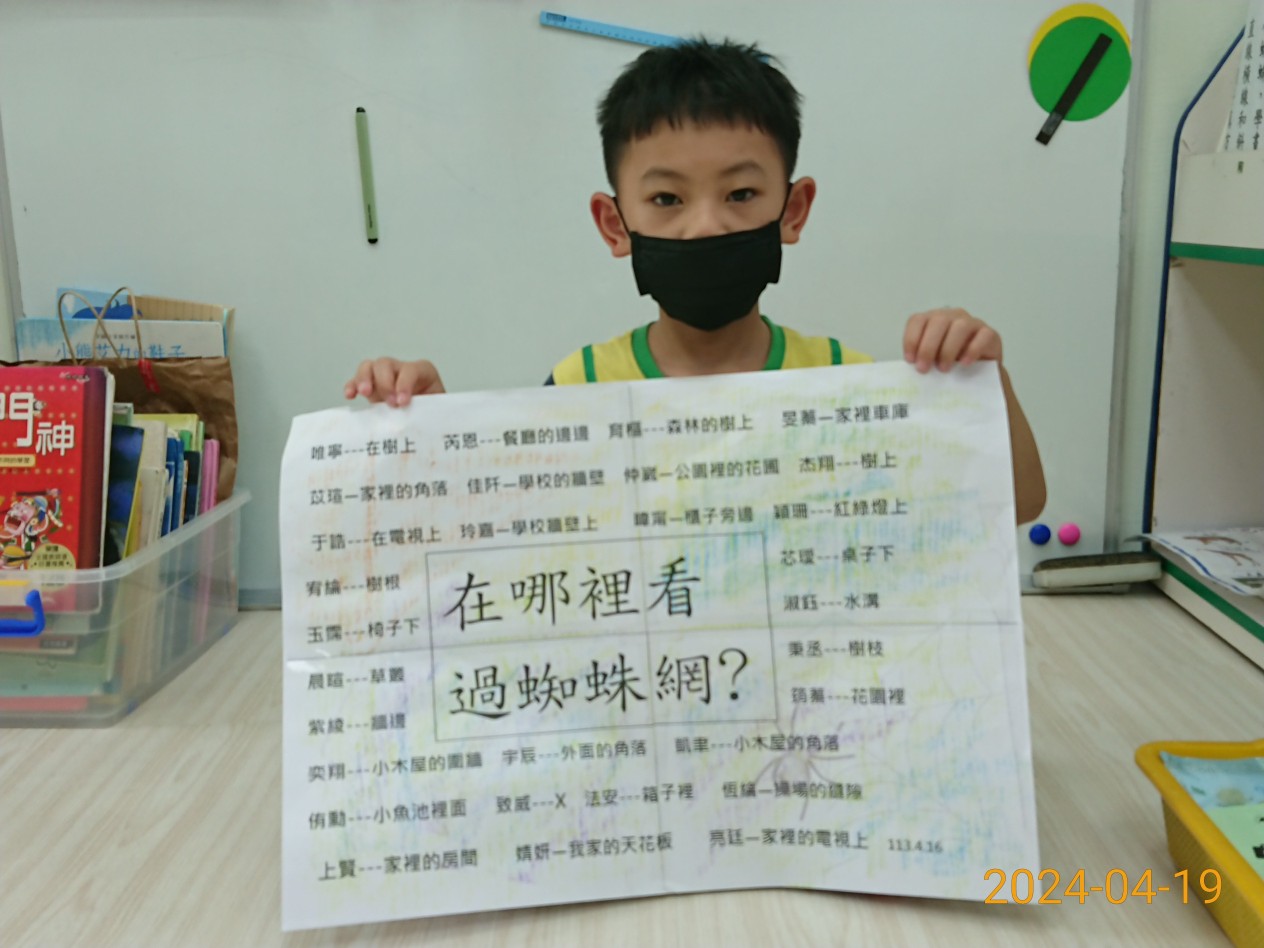 小熊艾力的鞋子
門神
唯寧---在樹上 芮恩---餐廳的邊邊 育樞---森林的樹上 旻蓁—家裡車庫
苡瑄—家裡的角落 佳阡—學校的牆壁 仲崴—公園裡的花圃 杰翔---樹上
于誥---在電視上 玲嘉—學校牆壁上 暐甯—櫃子旁邊 穎珊---紅綠燈上
宥綸---樹根
芯璦---桌子下
玉霈---椅子下
淑鈺---水溝
在哪裡看
過蜘蛛網?
晨暄---草叢
秉丞---樹枝
紫綾---牆邊
蓁---花園裡
奕翔---小木屋的圍牆 宇辰---外面的角落 凱聿---小木屋的角落
侑勳---小魚池裡面 致威---X 法安---箱子裡 恆縝—操場的縫隙
上賢---家裡的房間 婧妍—我家的天花板 亮廷—家裡的電視上 113.4.16
2024-04-19